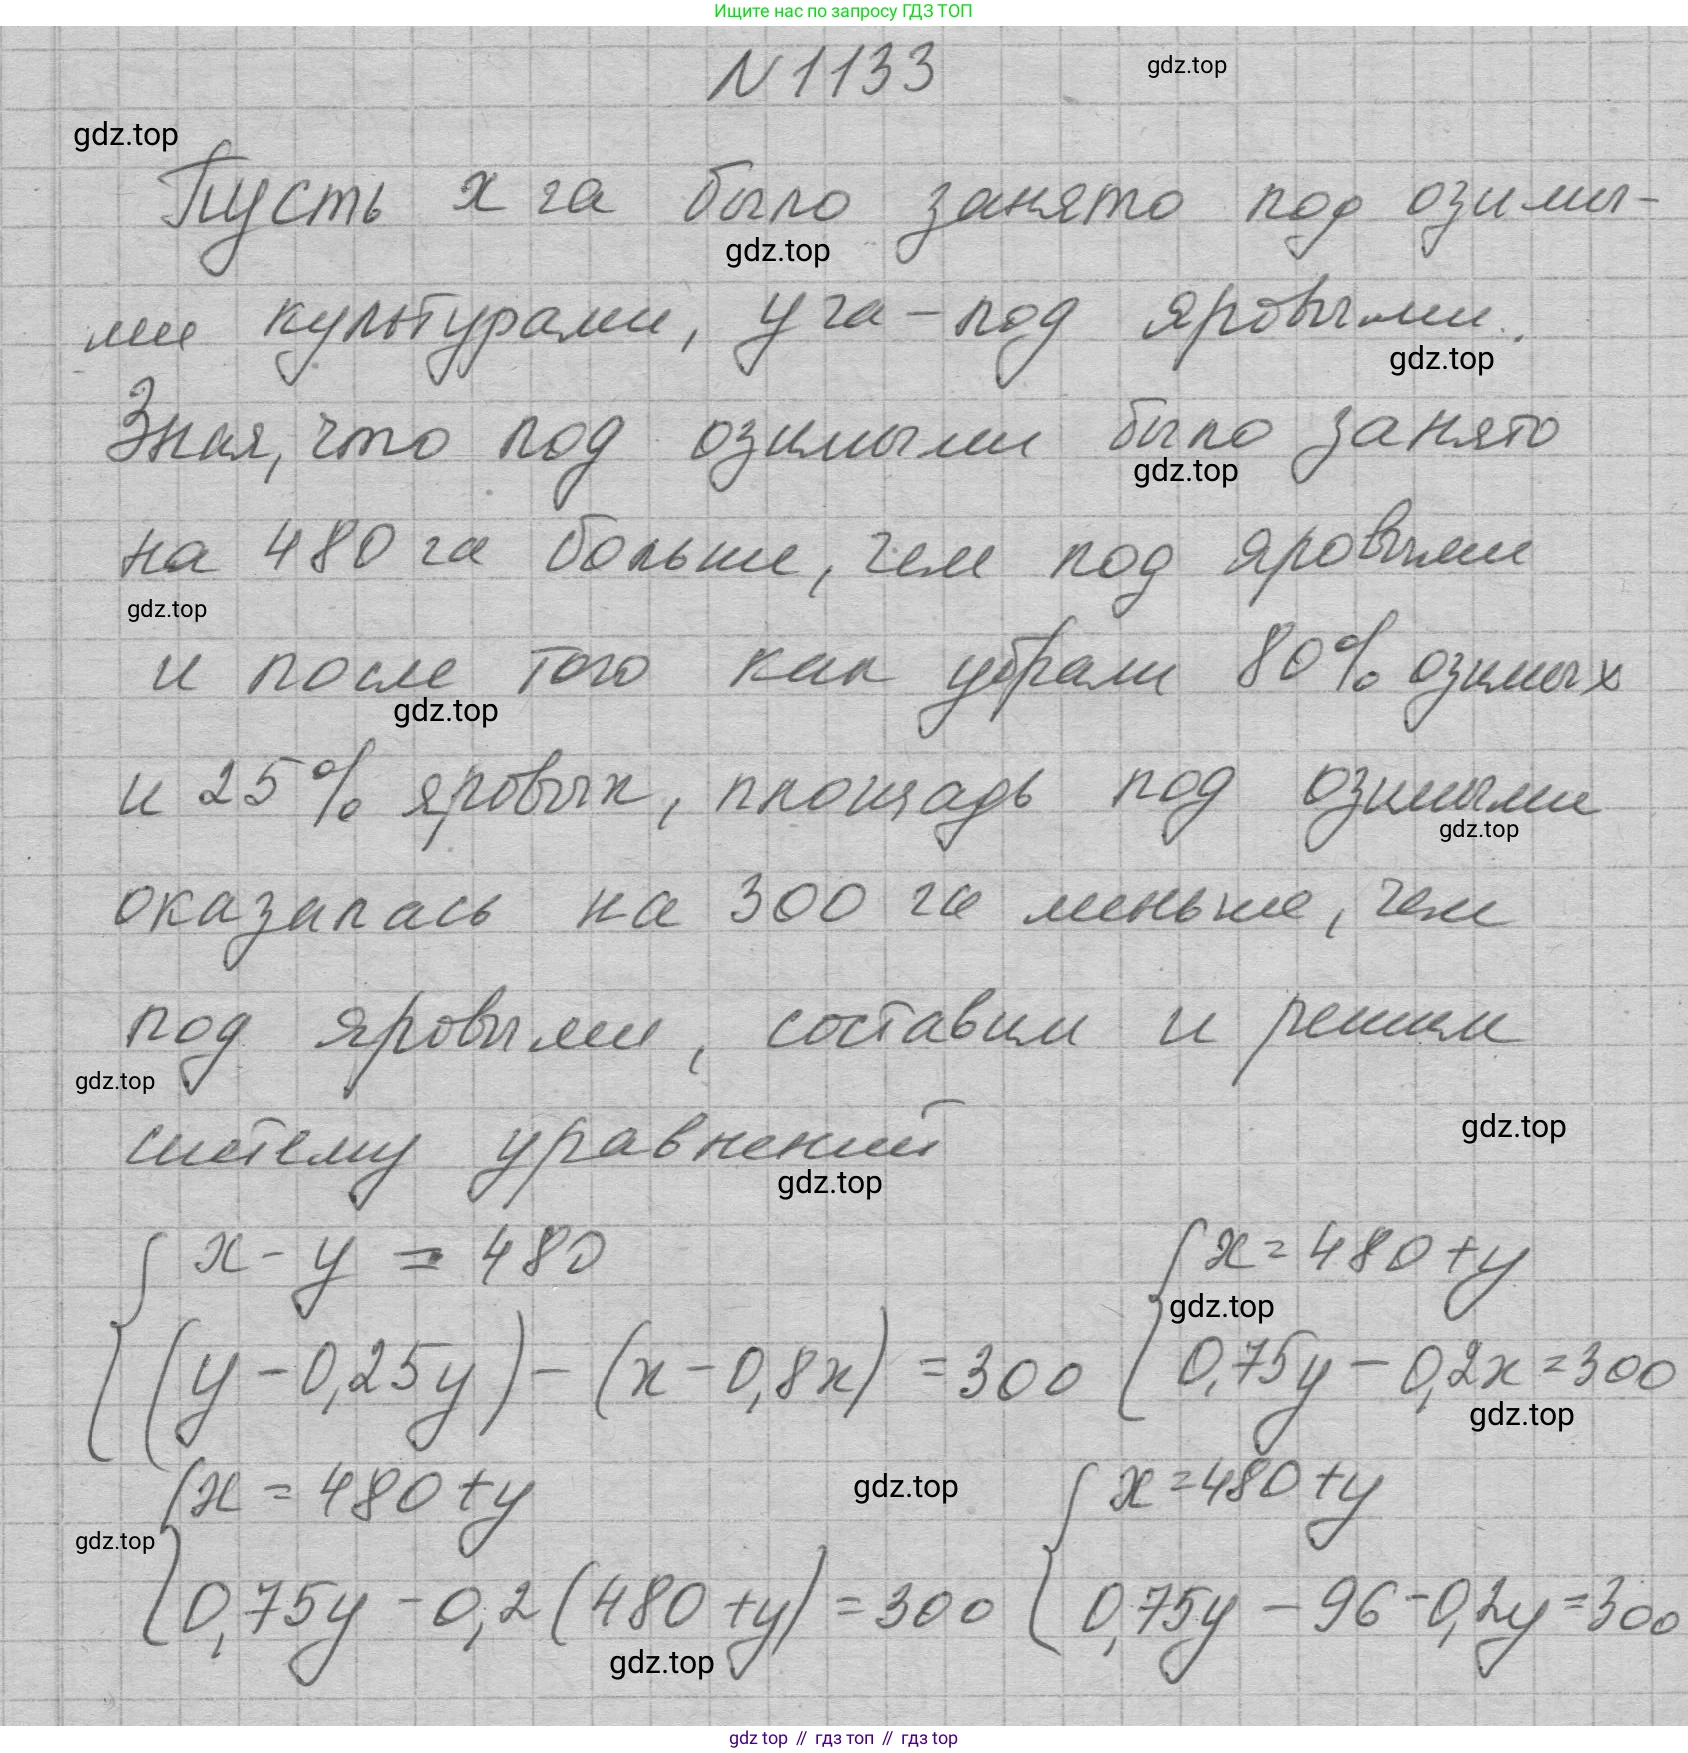 Ищите нас по запросу ГДЗ ТОП
N 1133
gdz.top
gdz.top
Пусть x га было занято под озимы-
gdz.top
ми культурами, y га – под яровыми.
gdz.top
Зная, что под озимыми было занято
gdz.top
на 480 га больше, чем под яровыми
gdz.top
и после того как убрали 80% озимых
gdz.top
и 25% яровых, площадь под озимыми
gdz.top
оказалась на 300 га меньше, чем
под яровыми, составим и решим
gdz.top
gdz.top
систему уравнений
gdz.top
{ x - y = 480 { x = 480 + y
gdz.top
(y - 0,25y) - (x - 0,8x) = 300 0,75y - 0,2x = 300
gdz.top
{ x = 480 + y { x = 480 + y
gdz.top
gdz.top
0,75y - 0,2(480 + y) = 300 0,75y - 96 - 0,2y = 300
gdz.top
gdz top // гдз топ // гдз top